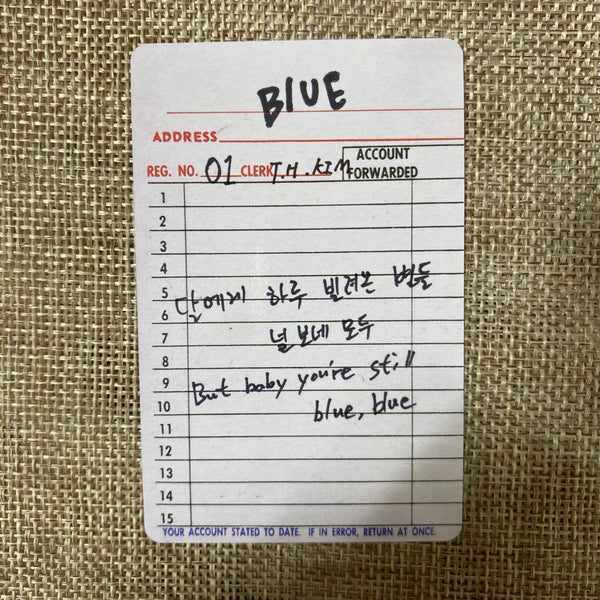 BlUE
ADDRESS
REG. NO. 01 CLERK T.H. KIM ACCOUNT FORWARDED
1
2
3
4
5
달에게 하루 빌려온 별들
6
7 널 보네 모두
8
9 But baby you're still
10 blue, blue
11
12
13
14
15
YOUR ACCOUNT STATED TO DATE. IF IN ERROR, RETURN AT ONCE.